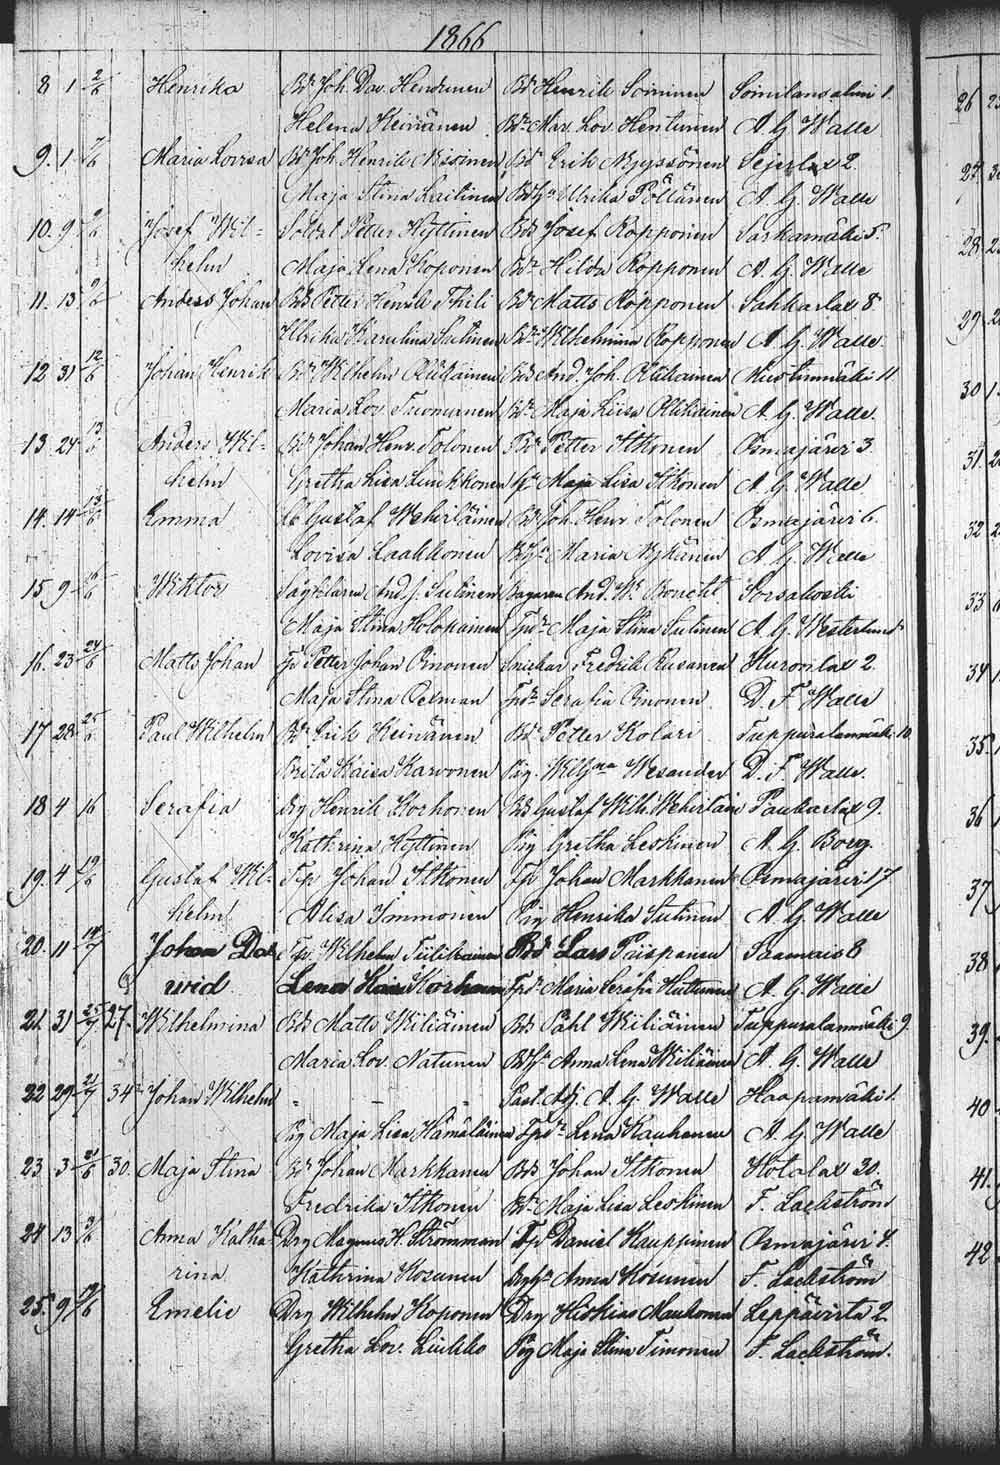 1866
8 1 2/6 Henrika Bd. Joh. Dav. Hendunen Bd. Henrik Soininen Soinilansalmi 1.
Helena Heinänen Bdr. Mar. Lov. Hentunen A. G. Walle
9. 1. 7/6 Maria Lovisa Bd. Joh. Henrik Nissinen Bd. Erik Nyyssönen Sejerlax 2.
Maja Stina Laitinen Ulrika Pöllänen A. G. Walle
10. 9. Josef Wil= Soldat Petter Hyttinen Bds Josef Ropponen Saskamäki 5.
helm Maja Lena Koponen Bdr. Hilda Ropponen A. G. Walle
11. 13 9/6 Anders Johan Bds Petter Henrik Thili Bd. Matts Ropponen Sahkarlax 8
Ulrika Karolina Sutinen Bdr. Wilhelmina Ropponen A. G. Walle.
12 31 12/6 Johan Henrik Bd. Wilhelm Olikainen Bds And. Joh. Olikainen Mustinmäki 11
Maria Lov. Tuomunen Bdr. Maja Liisa Olikainen A. G. Walle.
13. 24 13 Anders Wil= Bd. Johan Henr. Tolonen Bd. Petter Itkonen Osmajärvi 3.
helm Gretha Lisa Liukkonen Maja Lisa Itkonen A. G. Walle
14. 14 13/6 Emma Gustaf Wehviläinen Bd. Joh. Henr. Tolonen Osmajärvi 6.
Lovisa Laakkonen Maria Nykänen A. G. Walle
15 9 Wiktor And. J. Sutinen Bagaren And. W. Sorsakoski
Maja Stina Holopainen Maja Stina Sutinen A. G. Westerlund
16. 23 24/6 Matts Johan Tp Petter Johan Pinonen Snickar Fredrik Rusanen Kuronlax 2.
Maja Stina Oelman Serafia Pinonen D. F. Walle
17 28 25 Paul Wilhelm Bd. Erik Keinänen Bd. Petter Kolari Tuppuralanmäki 10
Brita Kaisa Karvonen Pig. Wesander D. F. Walle.
18 4 16 Serafia Drg Henrik Korhonen Bds Gustaf Wilh. Wehviläin Paukarlax 9.
Kathrina Hyttinen Pig Gretha Leskinen A. G. Borg.
19. 4 19/6 Gustaf Wil= Tp Johan Itkonen Tp Johan Markkanen Osmajärvi 17
helm Alisa Immonen Pig Henrika Sutinen A. G. Walle
20. 11 Johan Da= Tp. Wilhelm Tiilikainen Bd Lars Päispanen Saamais 8
wid Lena Kaisa Korhonen Maria Serafia Huttunen A. G. Walle
21. 31 25/7 27. Wilhelmina Bds Matts Wiliäinen Bds Påhl Wiliäinen Tuppuralanmäki 9.
Maria Lov. Natunen Anna Lena Wiliäinen A. G. Walle
22 29 21/7 34 Johan Wilhelm " " " Past. Adj. A. G. Walle Haapamäki 1.
Pig Maja Lisa Hämäläinen Lena Kauhanen A. G. Walle
23 3 21/6 30. Maja Stina Bd. Johan Markkanen Bds Johan Itkonen Kotalax 30.
Fredrika Itkonen Bdr. Maja Lisa Leskinen F. Lackström
24 13 Anna Katha= Drg Magnus H. Strömman Tp Daniel Kauppinen Osmajärvi 4.
rina Kathrina Kosunen Anna Kosunen F. Lackström
25. 9 Emelie Drg Wilhelm Koponen Drg Hiskias Maukonen Leppävirta 2
Gretha Lov. Liukko Pig Maja Stina Timonen F. Lackström.
26
27.
28
29
30
31.
32
33
34
35.
36
37
38
39.
40
41.
42